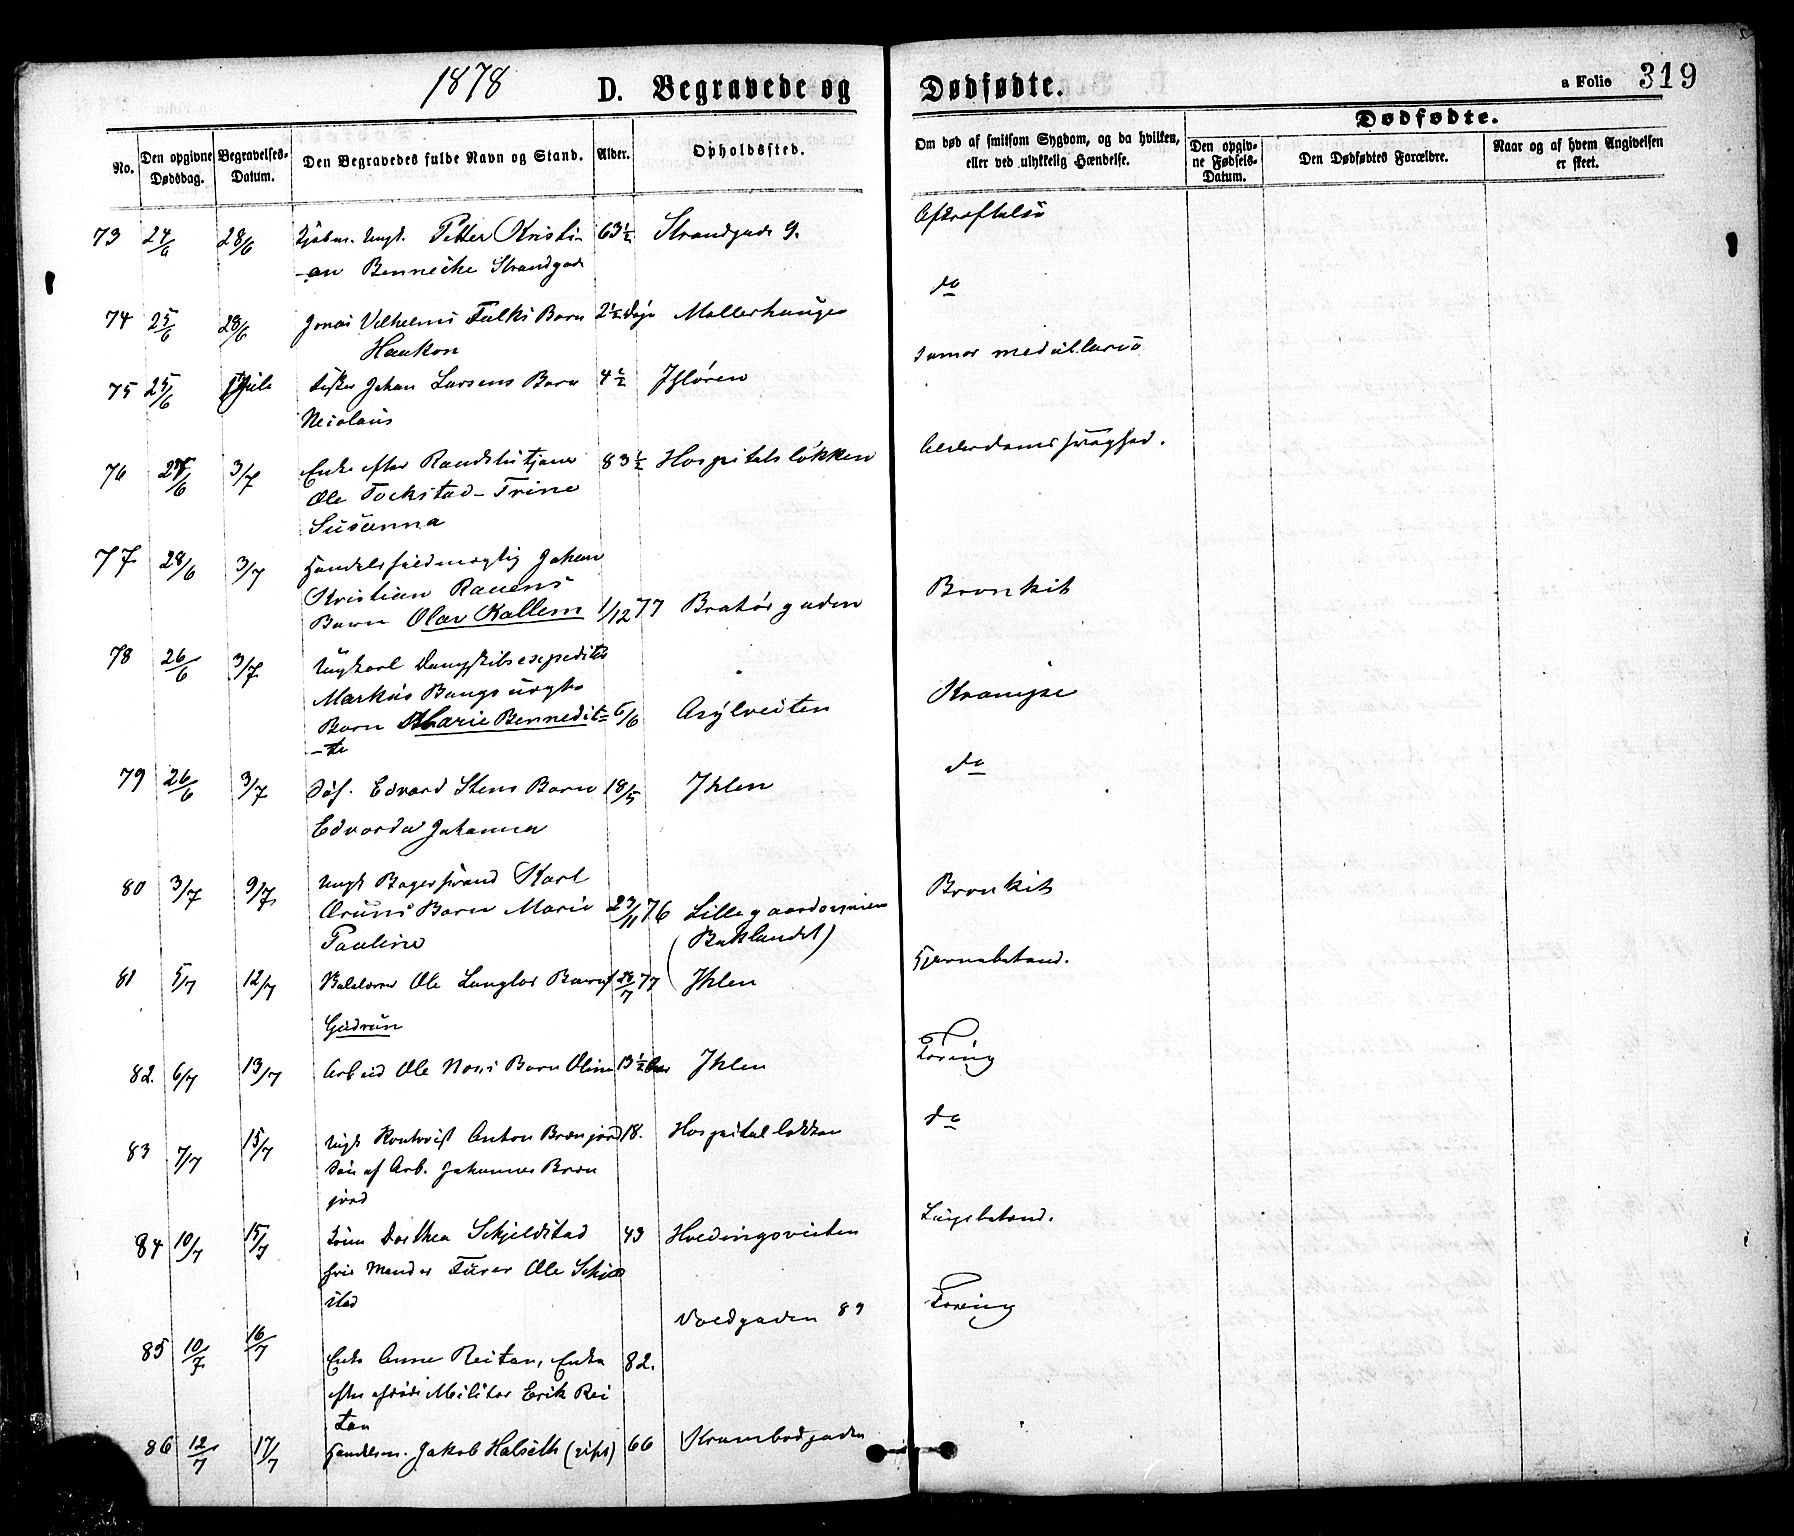 1878 D. Begravede og Dødfødte. a Folio 319
No. Den opgivne Dødsdag. Begravelses-Datum. Den Begravedes fulde Navn og Stand. Alder. Opholdssted. Om død af smitsom Sygdom, og da hvilken, eller ved ulykkelig Hændelse. Dødfødte. Den opgivne Fødsels-Datum. Den Dødfødtes Forældre. Naar og af hvem Angivelsen er skeet.
73 24/6 28/6 Petter Kristi- 63 1/2 Strandgade 9. Afkræftelse
-an Bennecke Strandgade
74 25/6 28/6 Jonas Vilhelms Falks Barn 2 1/2 Døgn Møllerhaugen do
Haakon
75 25/6 Juli Johan Larsens Barn 4 1/2 Ihlören Tumor medullaris
Nicolaus
76 3/7 Enke efter 83 1/2 Hospitalsløkken Alderdomssvaghed.
Ole Fockstad - Trine
Susanna
77 28/6 3/7 Handelsfuldmægtig Johan
Kristian Rauens
Barn Olav Kallem 1/12 77 Bratørgaden Bronkit
78 26/6 3/7 Ungkarl Dampskibsexpeditr
Markus Bangs uægte
Barn Marie Bennedik- 6/6 Asylveiten Krampe
-te
79 26/6 3/7 Edvard Stens Barn 18/5 Ihlen do
Edvarda Johanna
80 3/7 9/7 Ungk Bagersvend Karl
Barn Marie 76 Bronkit
Pauline (Baklandet)
81 5/7 12/7 Ole Langlos Barn 77 Ihlen Hjernebetænd.
Gudrun
82. 6/7 13/7 Arbeid Ole Barn Oline 13 1/2 Aar Ihlen Tæring
83 7/7 15/7 Ungk Anton Brænjord 18. Hospitalløkken do
Søn af Arb. Johannes Bræn
jord
84 10/7 15/7 Dorthea Skjeldstad 43 Hvedingsveiten Lungebetænd.
Ole Skjeld
stad
85 10/7 16/7 Enke Anne Reitan, Enke 82. Voldgaden 89 Tæring
efter Militær Erik Rei
tan
86 12/7 17/7 Handelsm. Jakob Halseth (gift) 66 Krambodgaden